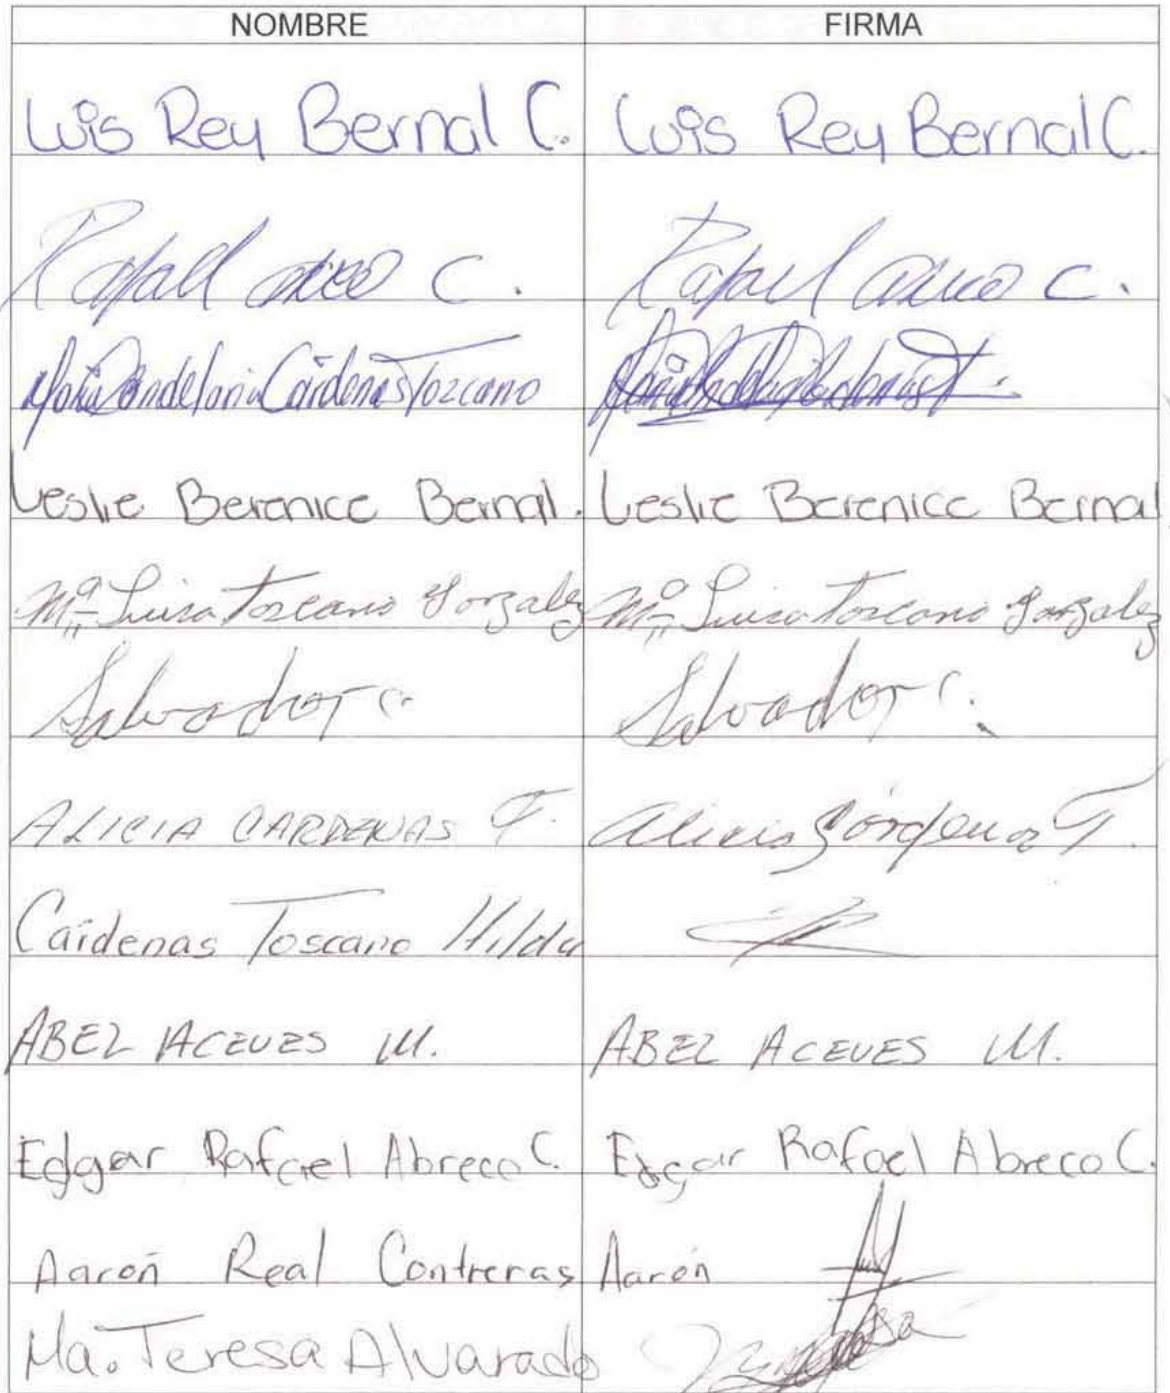 NOMBRE FIRMA
Luis Rey Bernal C. Luis Rey Bernal C.
Rafael C. Rafael C.
María Candelaria Cárdenas Tozcano
Leslie Berenice Bernal. Leslie Berenice Bernal
Mª Luisa Toscano Gonzalez Mª Luisa Toscano Gonzalez
Salvador C. Salvador C.
ALICIA CARDENAS T. Alicia Cárdenas T.
Cárdenas Toscano Hilda
ABEL ACEVES M. ABEL ACEVES M.
Edgar Rafael Abreco C. Edgar Rafael Abreco C.
Aarón Real Contreras Aarón
Ma. Teresa Alvarado